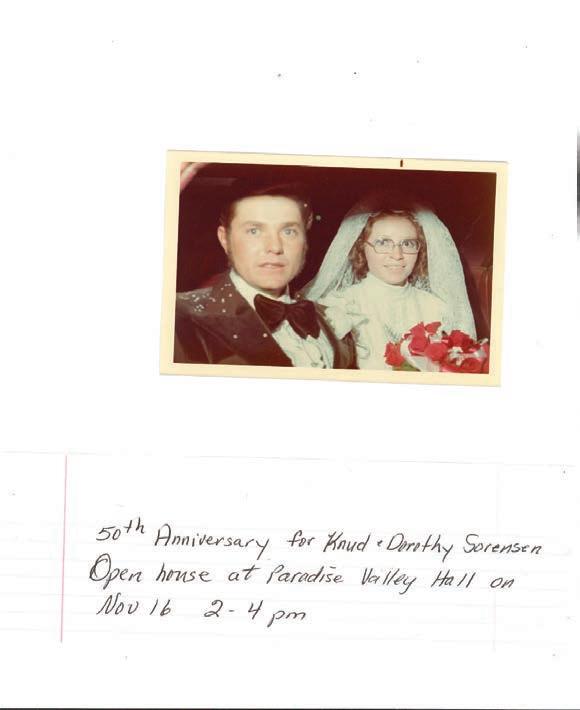 50th Anniversary for Knud & Dorothy Sorensen
Open house at Paradise Valley Hall on
Nov 16 2-4 pm